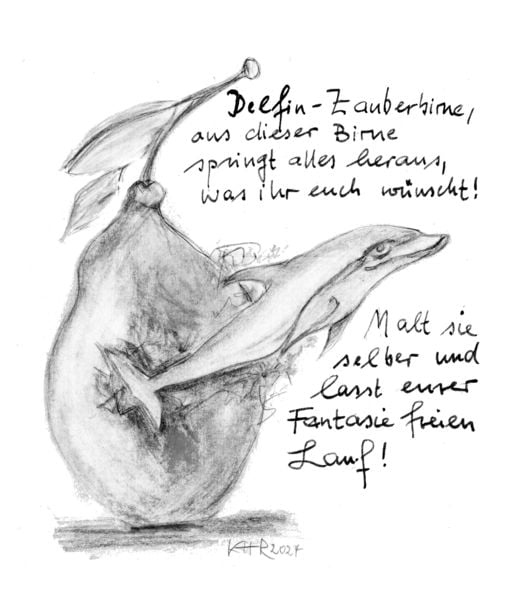 Delfin-Zauberbirne,
aus dieser Birne
springt alles heraus,
was ihr euch wünscht!
Malt sie
selber und
lasst eurer
Fantasie freien
Lauf!